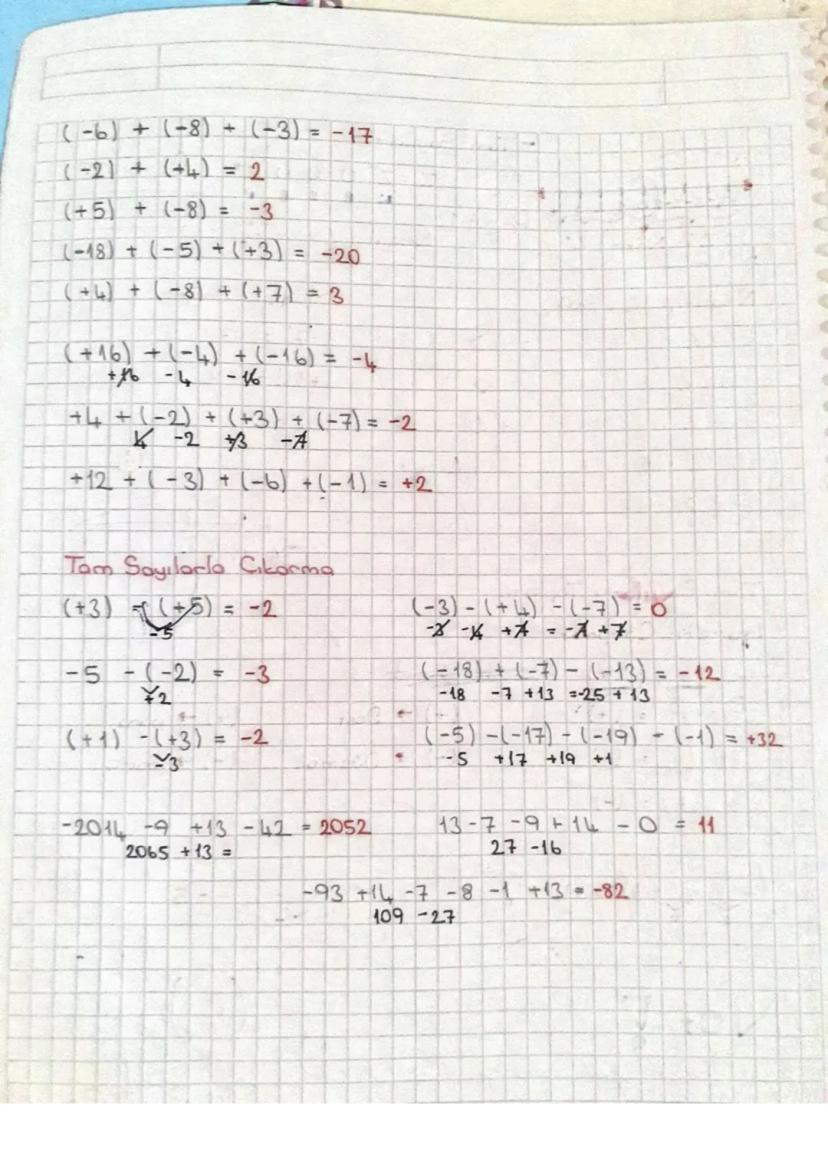 (-6) + (-8) + (-3) = -17
(-2) + (+4) = 2
(+5) + (-8) = -3
(-18) + (-5) + (+3) = -20
(+4) + (-8) + (+7) = 3
(+16) + (-4) + (-16) = -4
+16 -4 -16
+4 + (-2) + (+3) + (-7) = -2
4 -2 +3 -7
+12 + (-3) + (-6) + (-1) = +2
Tam Sayılarla Çıkarma
(+3) - (+5) = -2
-5
(-3) - (+4) - (-7) = 0
-3 -4 +7 = -7 +7
-5 - (-2) = -3
+2
(-18) + (-7) - (-13) = -12
-18 -7 +13 = -25 + 13
(+1) - (+3) = -2
-3
(-5) - (-17) - (-19) - (-1) = +32
-5 +17 +19 +1
-2014 -9 +13 -42 = 2052
2065 +13 =
13 - 7 - 9 + 14 - 0 = 11
27 -16
-93 +14 -7 -8 -1 +13 = -82
109 -27